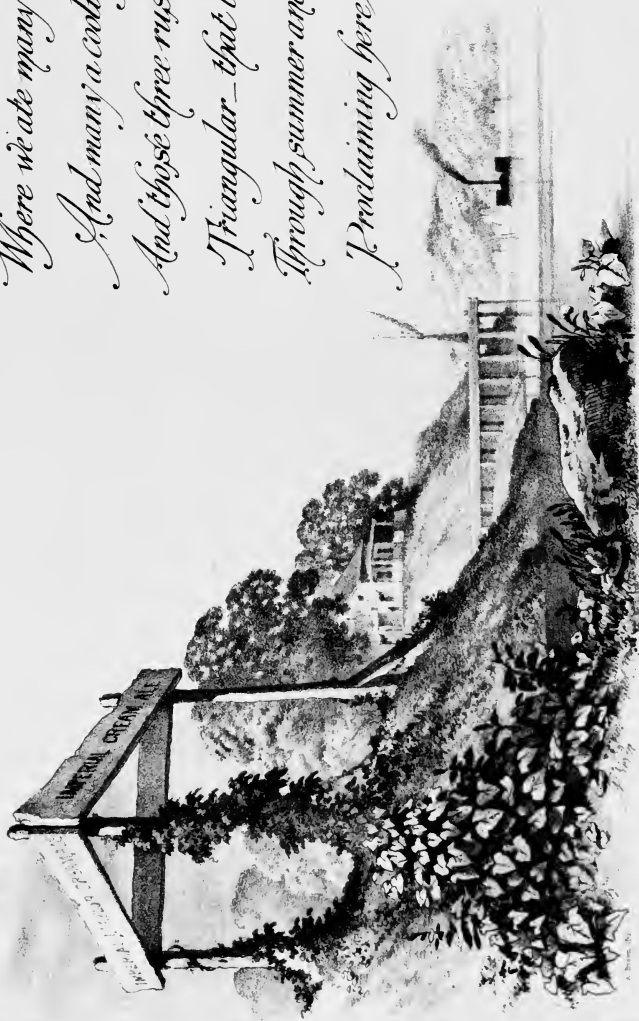 Where we ate many
And many a cool
And those three rus
Triangular_that
Through summer an
Proclaiming here,
IMPERIAL CREAM ALE